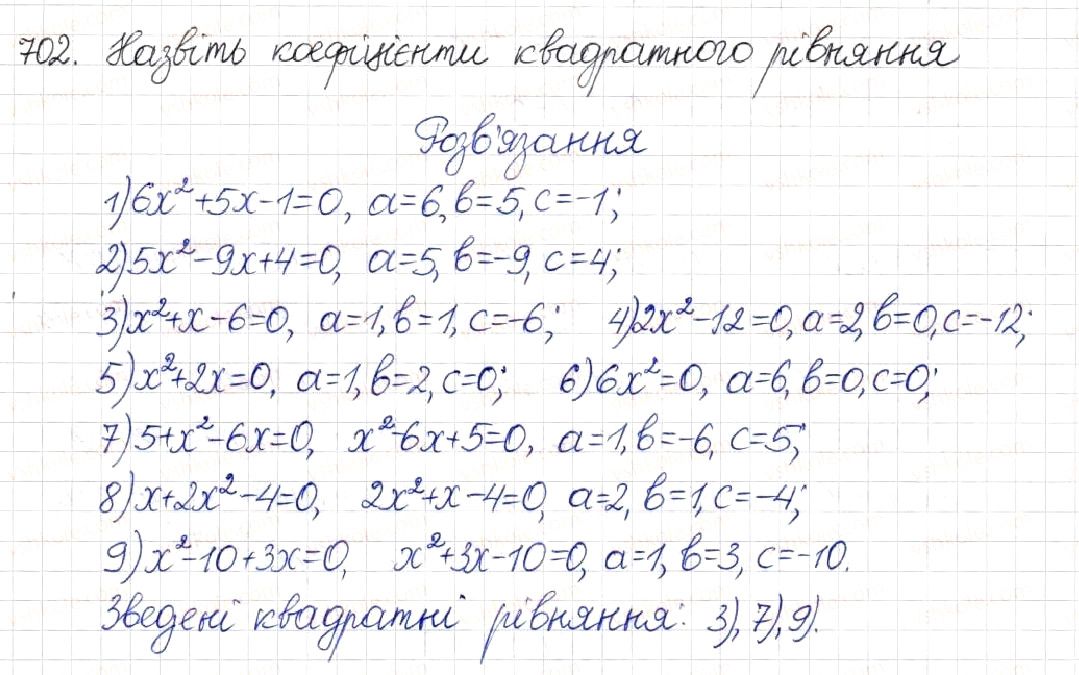 702. Назвіть коефіцієнти квадратного рівняння
Розв'язання
1) 6x²+5x-1=0, a=6, b=5, c=-1;
2) 5x²-9x+4=0, a=5, b=-9, c=4;
3) x²+x-6=0, a=1, b=1, c=-6; 4) 2x²-12=0, a=2, b=0, c=-12;
5) x²+2x=0, a=1, b=2, c=0; 6) 6x²=0, a=6, b=0, c=0;
7) 5+x²-6x=0, x²-6x+5=0, a=1, b=-6, c=5;
8) x+2x²-4=0, 2x²+x-4=0, a=2, b=1, c=-4;
9) x²-10+3x=0, x²+3x-10=0, a=1, b=3, c=-10.
Зведені квадратні рівняння: 3), 7), 9).